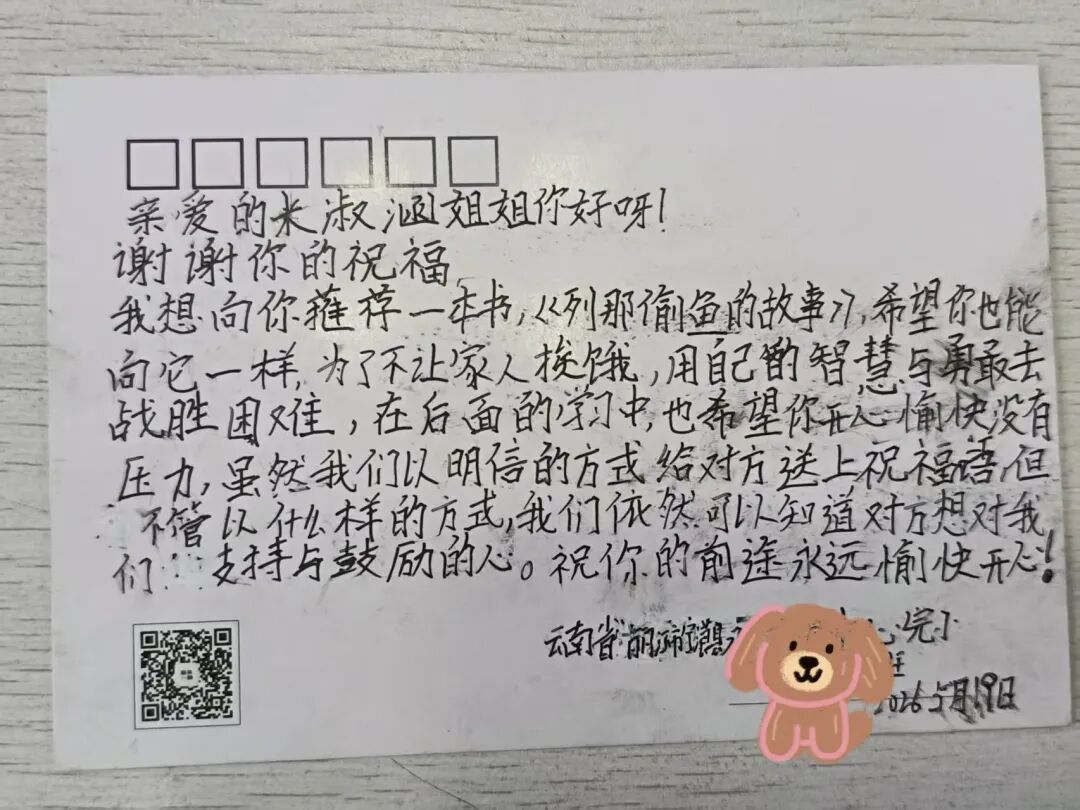 亲爱的米淑涵姐姐你好呀!
谢谢你的祝福,
我想向你薤荐一本书,《列那偷鱼的故事》,希望你也能
向它一样,为了不让家人挨饿,用自己的智慧与勇敢去
战胜困难,在后面的学习中,也希望你开心愉快没有
压力,虽然我们以明信的方式给对方送上祝福语,但
不管以什么样的方式,我们依然可以知道对方想对我
们 支持与鼓励的心。祝你的前途永远愉快开心!
云南省丽 市 完小
2026 5月19日